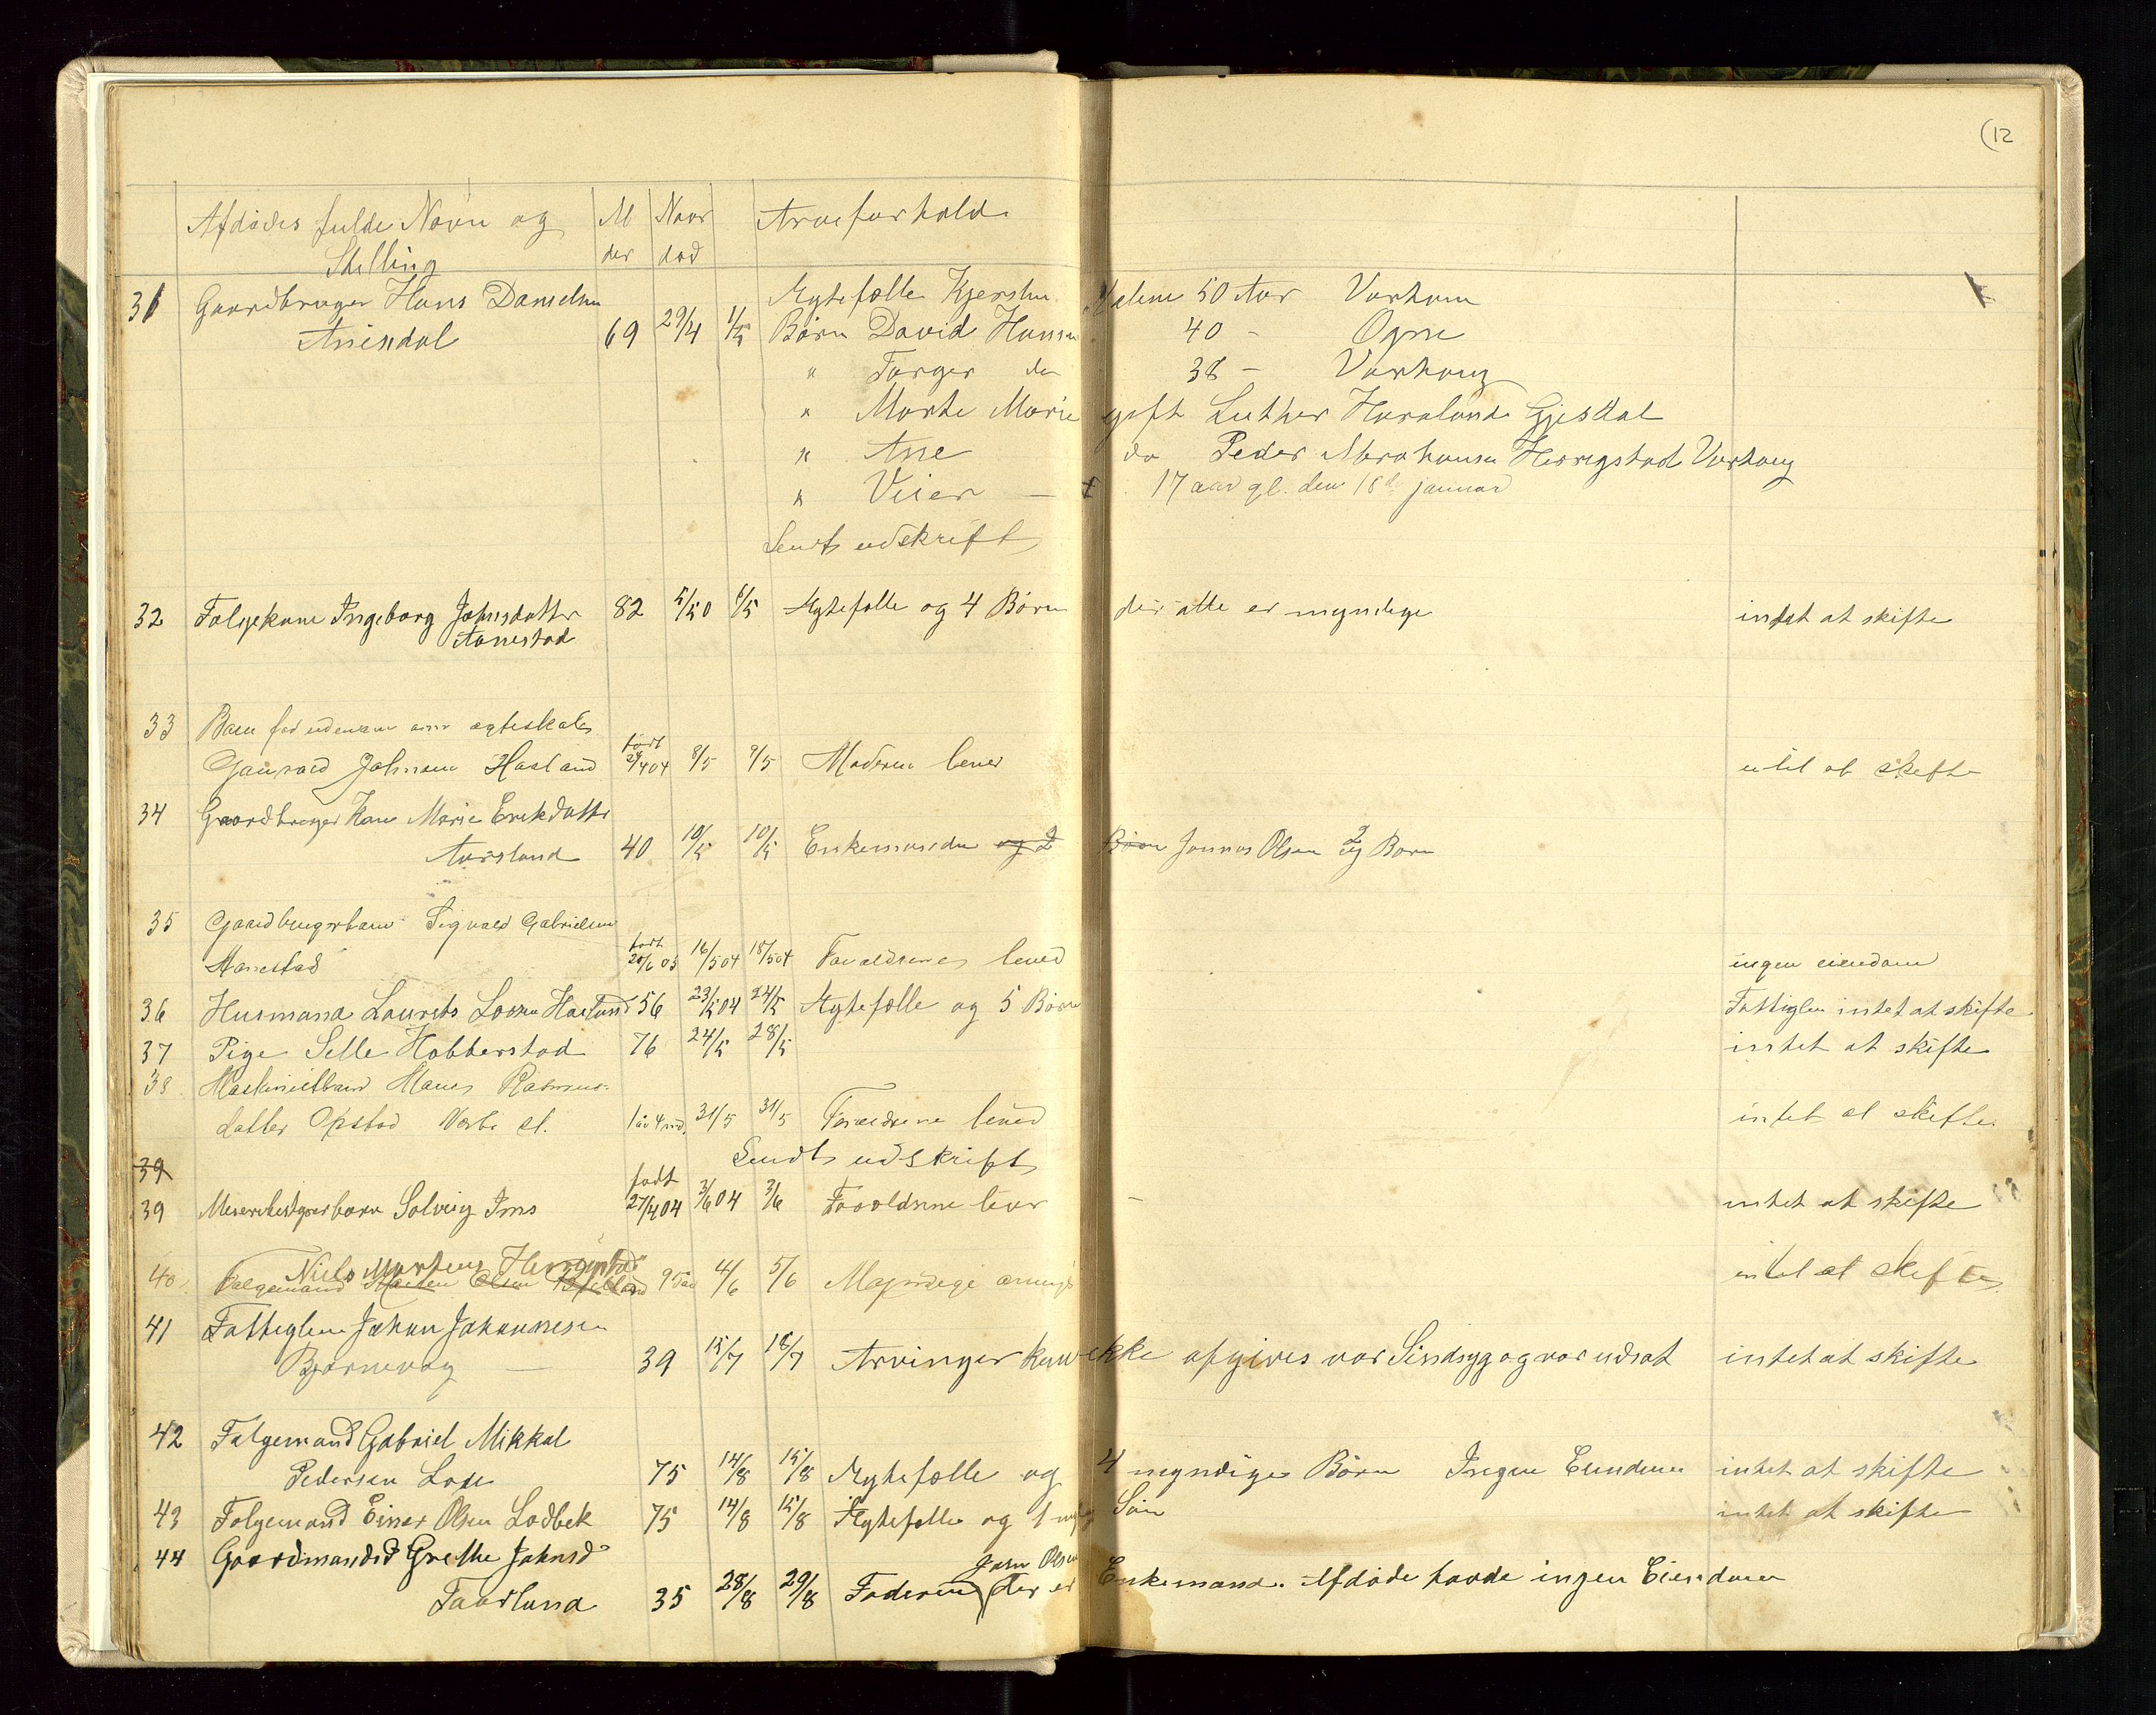 (12
Afdødes fulde Navn og Al Naar Arveforhold
Stilling der død
31 Gaardbruger Hans Danielsen Ægtefælle Kjersten Malene 50 Aar Varhaug
Aniesdal 69 29/4 1/5 Børn David Hansen 40 - Ogne
" Torger do 38 - Varhaug
" Marte Marie gift Luther Haraland Gjesdal
" Ane do Peder Abrahamsen Herrigstad Varhaug
" Vier - 17 aar gl. den 18de januar
Sendt udskrift
32 Folgekone Ingeborg Johnsdatter 82 5/5 0 6/5 Ægtefælle og 4 Børn der alle er myndige intet at skifte
Aanestad
33 Barn fød udenom ægteskab
født
Johnsen Haaland 24/4 04 8/5 9/5 Moderen lever intet at skifte
34 Gaardbruger Kone Marie Erikdatter
Aarsland 40 10/5 10/5 Enkemanden og 2 Børn Jonnas Olsen og 2 Børn
35 Gaardbrugerbarn Sigvald Gabrielsen
født
Aanestad 20/6 03 16/5 04 18/5 04 Forældrene lever ingen eiendom
36 Husmand Laurits Larsen Haaland 56 23/5 04 24/5 Ægtefælle og 5 Børn Fattiglem intet at skifte
37 Pige Selle Hobberstad 76 24/5 28/5 intet at skifte
38 Maskinistbarn Rasmus-
datter Opstad st. 1 år 4 md. 31/5 31/5 Forældrene lever intet at skifte
39 Sendt udskrift
født
39 Meieribestyrerbarn Solveig Ims 27/4 04 3/6 04 3/6 Forældrene lever - intet at skifte
Niels Mortens Herrigstad
40. Folgemand Olsen 95 år 4/6 5/6 Myndige arvinger intet at skifte
41 Fattiglem Johan Johannesen
Bjørnevag - 39 15/7 16/7 Arvinger kan ikke opgives var Sindsyg og var udsat intet at skifte
42 Folgemand Gabriel Mikkal
Pedersen Lode 75 14/8 15/8 Ægtefælle og 4 myndige Børn Ingen Eiendom intet at skifte
43 Folgemand Einer Olsen Lodbek 75 14/8 15/8 Ægtefælle og 1 Søn intet at skifte
44 Gaardmands Grethe Johnsd
John Olsen
Taarland 35 28/8 29/8 Faderen der er Enkemand. Afdøde havde ingen Eiendom